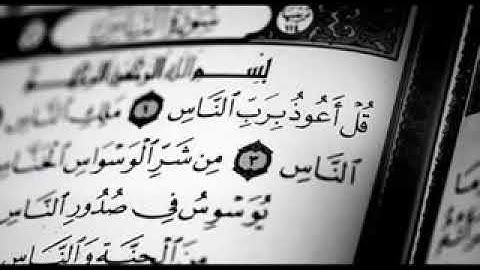 سورة الناس
بسم الله الرحمن الرحيم
قُلْ أَعُوذُ بِرَبِّ ٱلنَّاسِ ١ مَلِكِ ٱلنَّاسِ
ٱلنَّاسِ ٣ مِن شَرِّ ٱلْوَسْوَاسِ ٱلْخَنَّاسِ
يُوَسْوِسُ فِي صُدُورِ ٱلنَّاسِ
مِنَ ٱلْجِنَّةِ وَٱلنَّاسِ